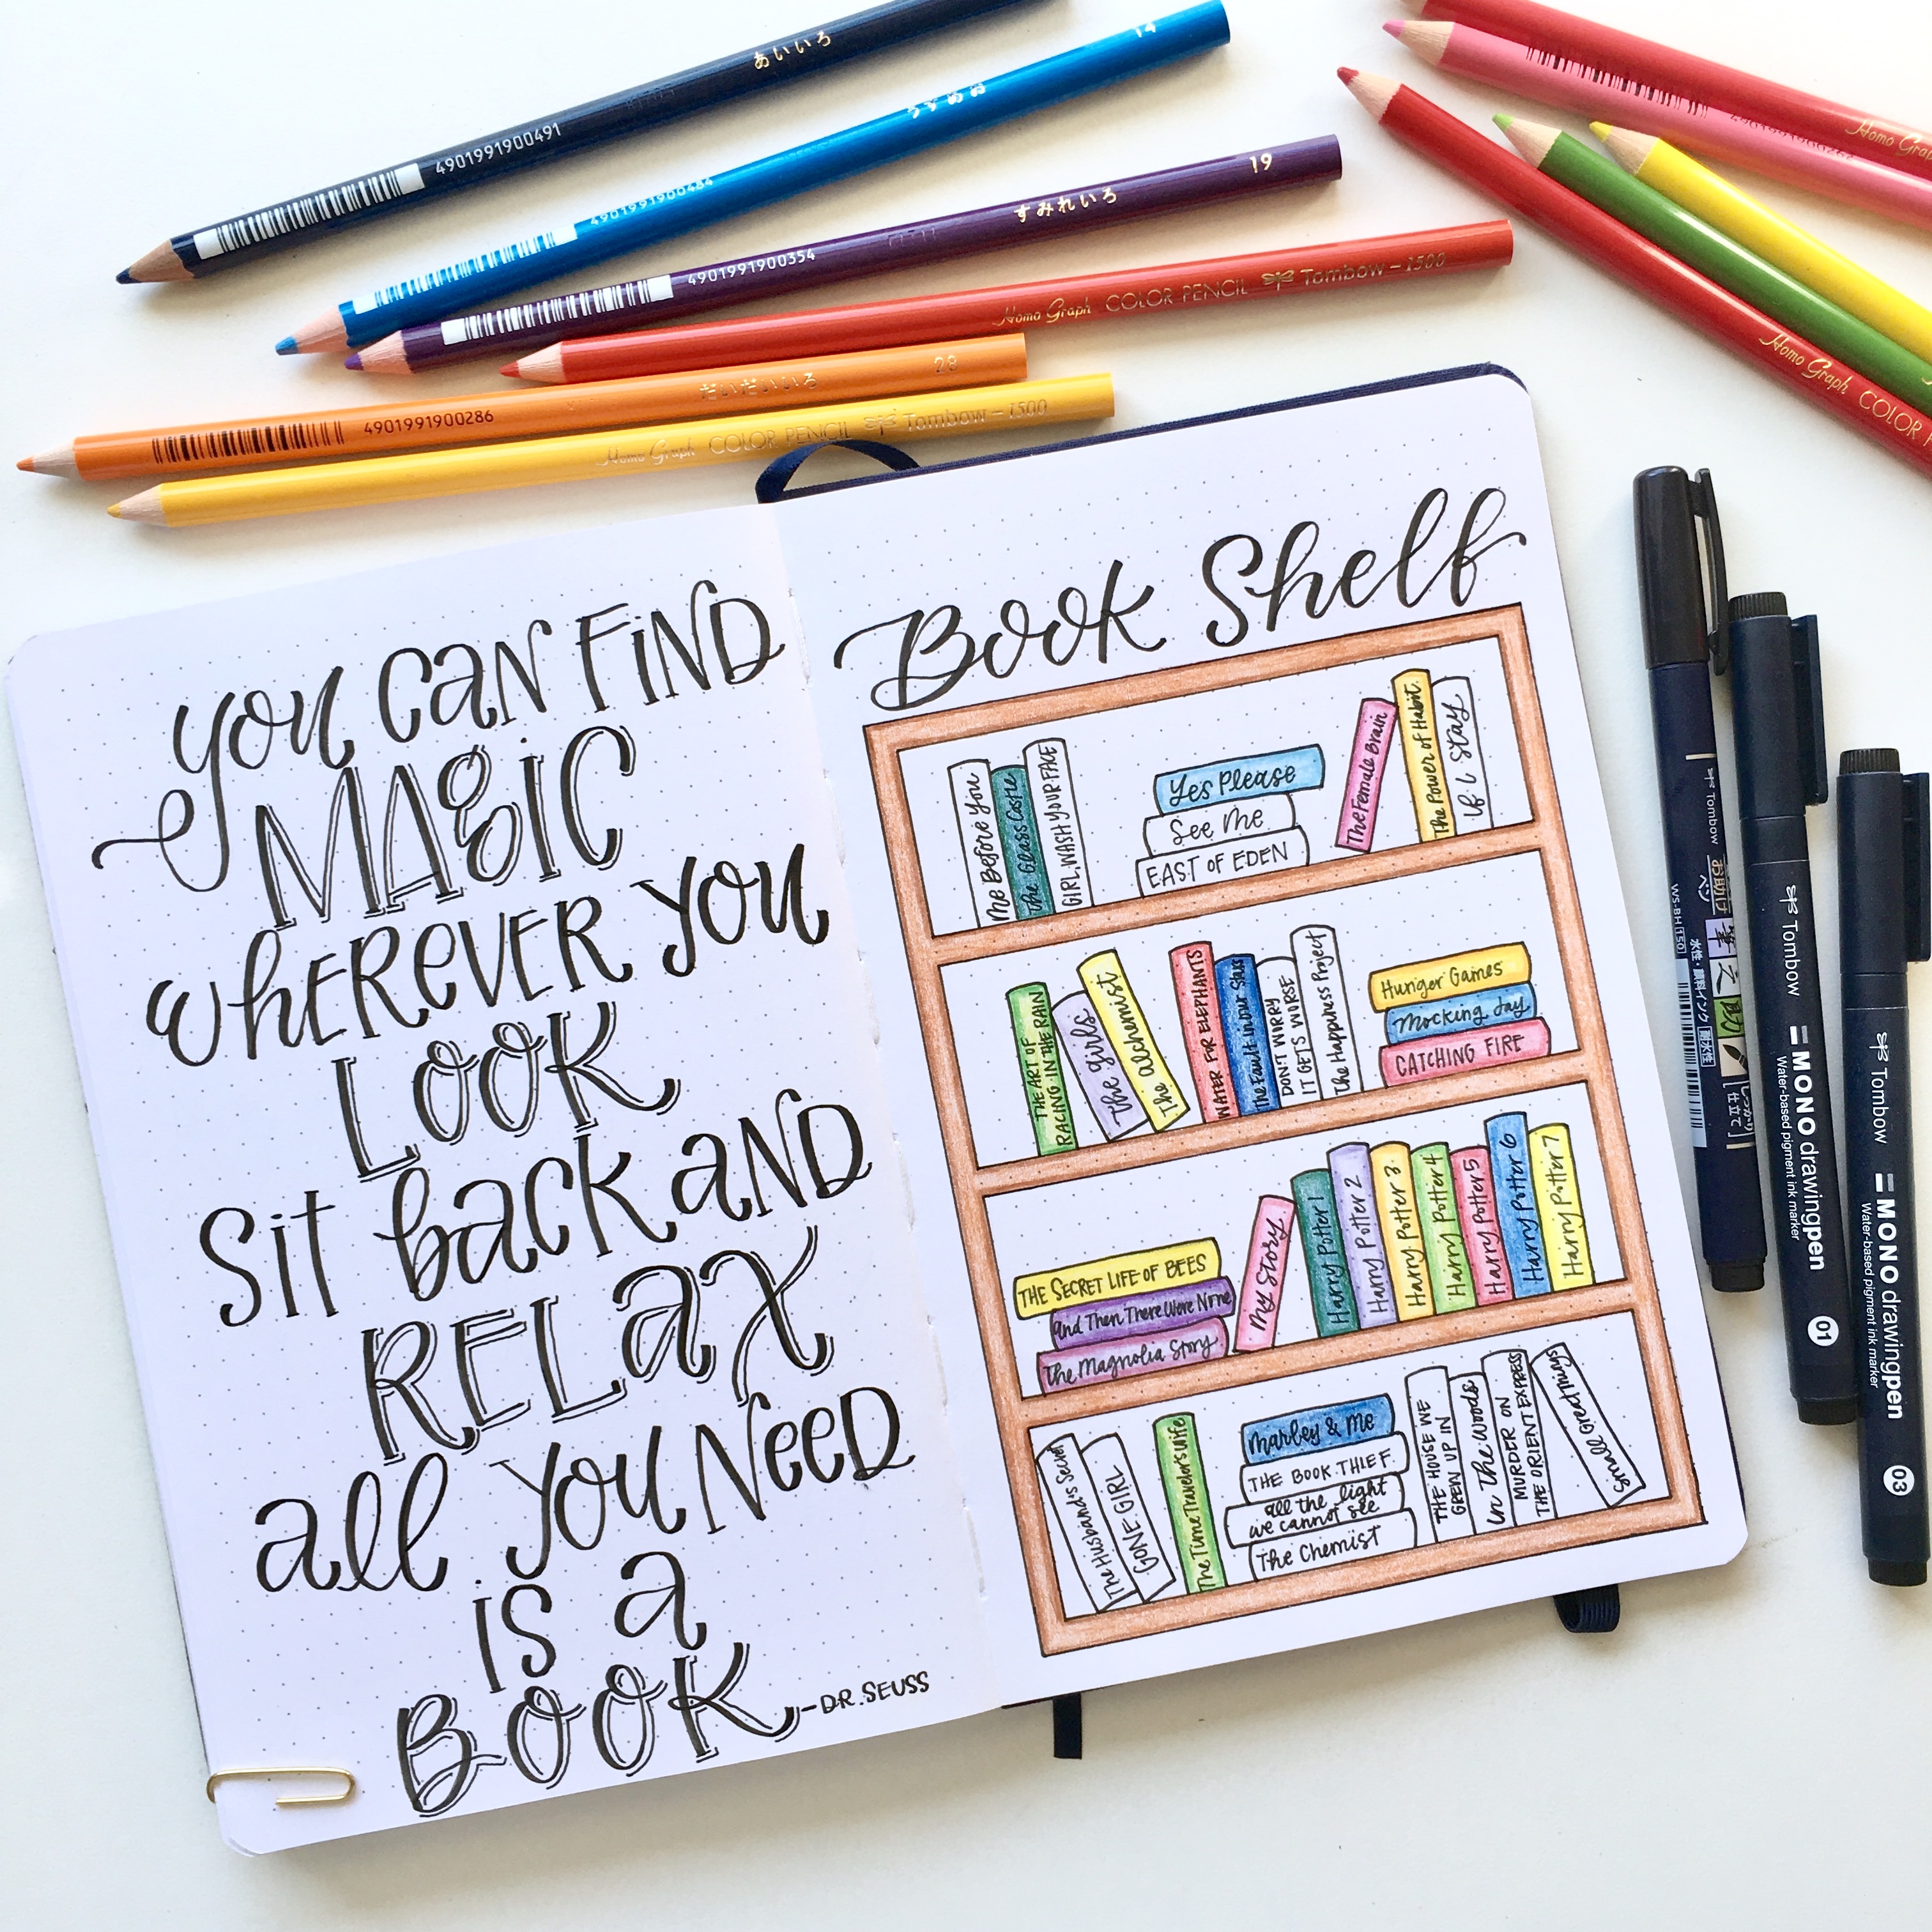 あいいろ
4901991900491
14
うすあお
4901991900484
19
すみれいろ
4901991900354
Homo Graph COLOR PENCIL Tombow-1500
28
だいだいいろ
4901991900286
Homo Graph COLOR PENCIL Tombow-1500
Homo Graph
Homo Graph COLOR
you can FiND
MAgiC
wherever you
LOOK
Sit back aND
RELax
all you Need
is a
BOOK
-DR.SEUSS
Book Shelf
Me Before You
The Glass Castle
GIRL, WASH YOUR FACE
Yes Please
See Me
EAST OF EDEN
The Female Brain
The Power of Habit
If I Stay
THE ART OF
RACING IN THE RAIN
The Girls
The Alchemist
WATER FOR ELEPHANTS
The Fault in our Stars
DON'T WORRY
IT GETS WORSE
The Happiness Project
Hunger Games
Mocking Jay
CATCHING FIRE
THE SECRET LIFE OF BEES
And Then There Were None
The Magnolia Story
My Story
Harry Potter 1
Harry Potter 2
Harry Potter 3
Harry Potter 4
Harry Potter 5
Harry Potter 6
Harry Potter 7
The Husband's Secret
GONE GIRL
The Time Travelors Wife
Marley & Me
THE BOOK THIEF
all the light
we cannot see
The Chemist
THE HOUSE WE
GREW UP IN
In The Woods
MURDER ON
THE ORIENT EXPRESS
Small Great Things
Tombow
WS-BH(150)
水性・顔料インク
Tombow
MONO drawingpen
Water-based pigment ink marker
01
Tombow
MONO drawingpen
Water-based pigment ink marker
03